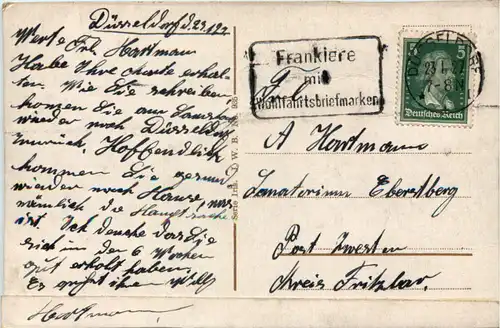 Düsseldorf d. 23.1.27.
Werte Frl. Hartman
Habe Ihre Karte erhal-
ten. Wie Sie schreiben
kommen Sie am Samstag
wieder nach Düsseldorf
zurück, Hoffendlich
kommen Sie gesund
wieder nach Hause, was
nämlich die Hauptsache
ist. Ich denke das Sie
sich in den 6 Wochen
gut erholt haben.
Es grüßt ihnen Willi
Hartmann.
Frankiere
mit
Wohlfahrtsbriefmarken
5 5
Deutsches Reich
Frl.
A Hartmann
Sanatorium Eberstberg
Post Zwesten
Kreis Fritzlar.